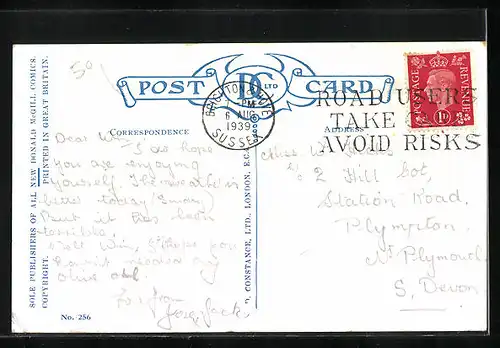 50
POST CARD
D C LTD
BRIGHTON & HOVE
PM
6 AUG
1939
SUSSEX
ROAD USERS
TAKE
AVOID RISKS
POSTAGE REVENUE
1D
CORRESPONDENCE
ADDRESS
Dear Win,
I do hope
you are enjoying
yourself. The weather is
here today (Sunday)
But it has been
terrible.
Well Win, I hope you
olive oil.
from
Jack
Miss W.
c/o 2 Hill Cot,
Station Road,
Plympton
Nr Plymouth
S. Devon.
SOLE PUBLISHERS OF ALL NEW DONALD McGILL COMICS.
PRINTED IN GREAT BRITAIN.
COPYRIGHT.
No. 256
D. CONSTANCE, LTD., LONDON, E.C.